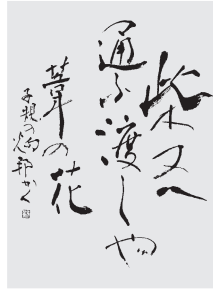 柴又へ
通ふ渡しや
葦の花
子規の句 かく